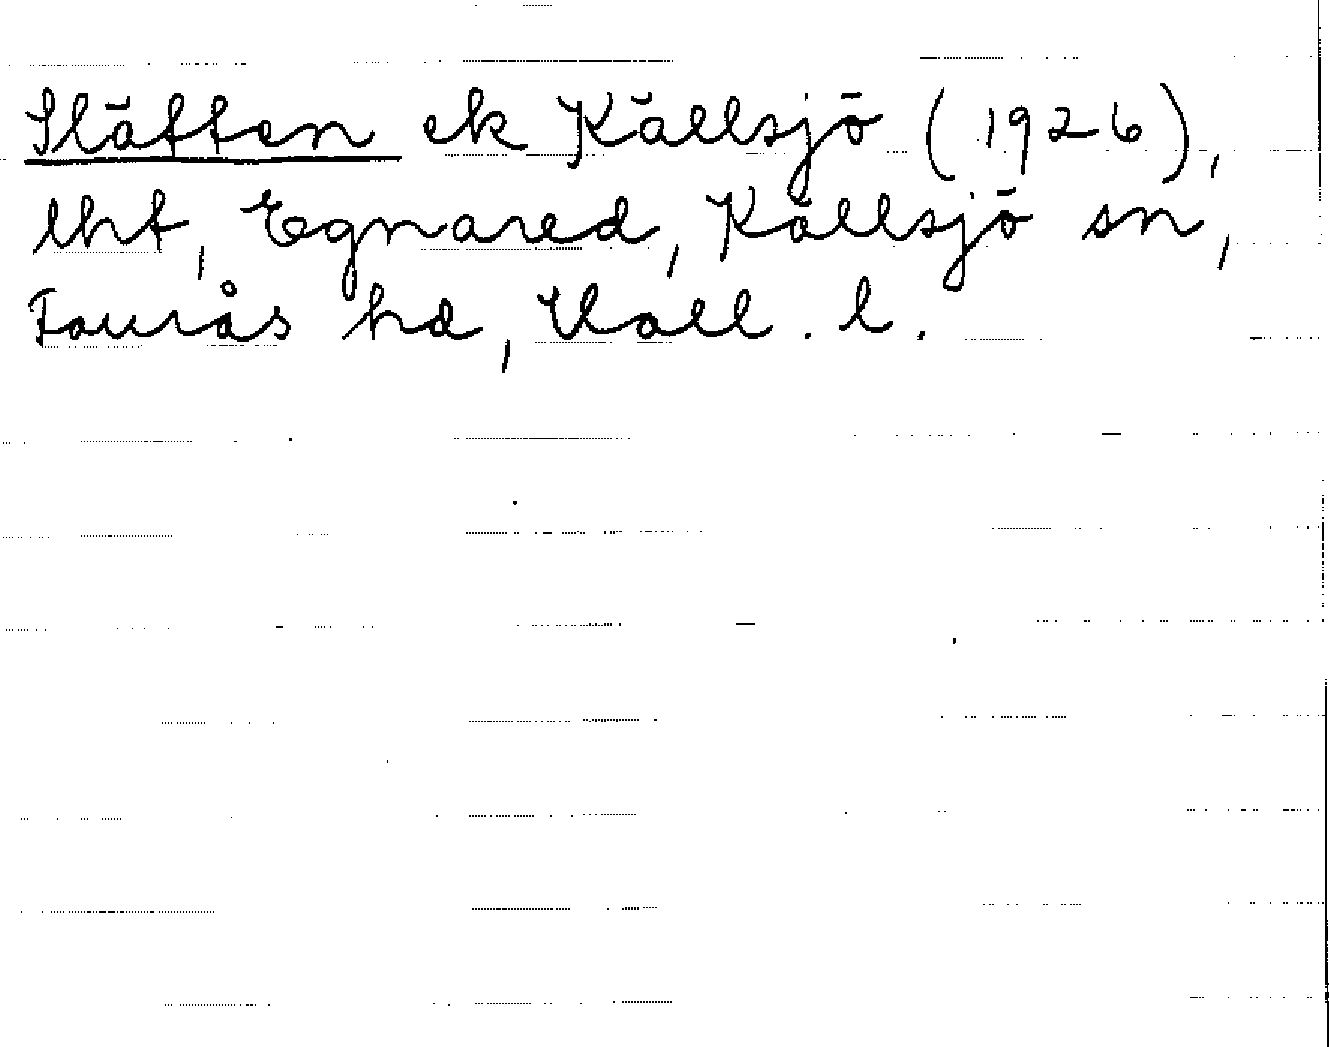 Slätten ek Källsjö (1926),
lht, Egnared, Källsjö sn,
Faurås hd, Hall. l.